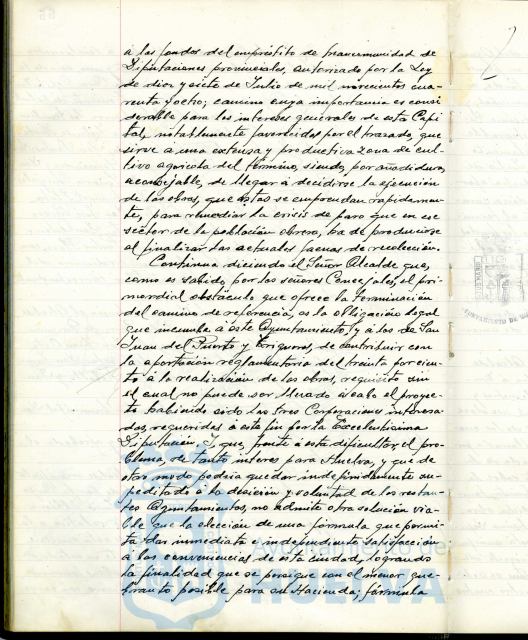 á los fondos del empréstito de mancomunidad de
Diputaciones provinciales, autorizado por la Ley
de diez y siete de Julio de mil novecientos cua-
renta y ocho; camino cuya importancia es consi
derable para los intereses generales de esta Capi
tal, notablemente favorecidos por el trazado, que
sirve á una extensa y productiva zona de cul-
tivo agrícola del término, siendo, por añadidura,
aconsejable, de llegar á decidirse la ejecución
de las obras, que éstas se emprendan rápidamen-
te, para remediar la crisis de paro que en ese
sector de la población obrera, ha de producirse
al finalizar las actuales faenas de recolección.
Continua diciendo el Señor Alcalde que,
como es sabido por los señores Concejales, el pri-
mordial obstáculo que ofrece la terminación
del camino de referencia, es la obligación legal
que incumbe á éste Ayuntamiento, y á los de San
Juan del Puerto y Trigueros, de contribuir con
la aportación reglamentaria del treinta por cien-
to á la realización de las obras, requisito sin
el cual no puede ser llevado á cabo el proyec-
to habiendo sido las tres Corporaciones interesa-
das, requeridas á este fin por la Excelentísima
Diputación. Y, que, frente á esta dificultad, el pro-
blema, de tanto interes para Huelva, y que de
otro modo podria quedar indefinidamente su-
peditado á la decisión y voluntad de los restan-
tes Ayuntamientos, no admite otra solución via-
ble que la elección de una fórmula que permi-
ta dar inmediata e independiente satisfacción
á las conveniencias de esta ciudad, logrando
la finalidad que se persigue con el menor que-
branto posible para su Hacienda; fórmula
Ayuntamiento de
HUELVA